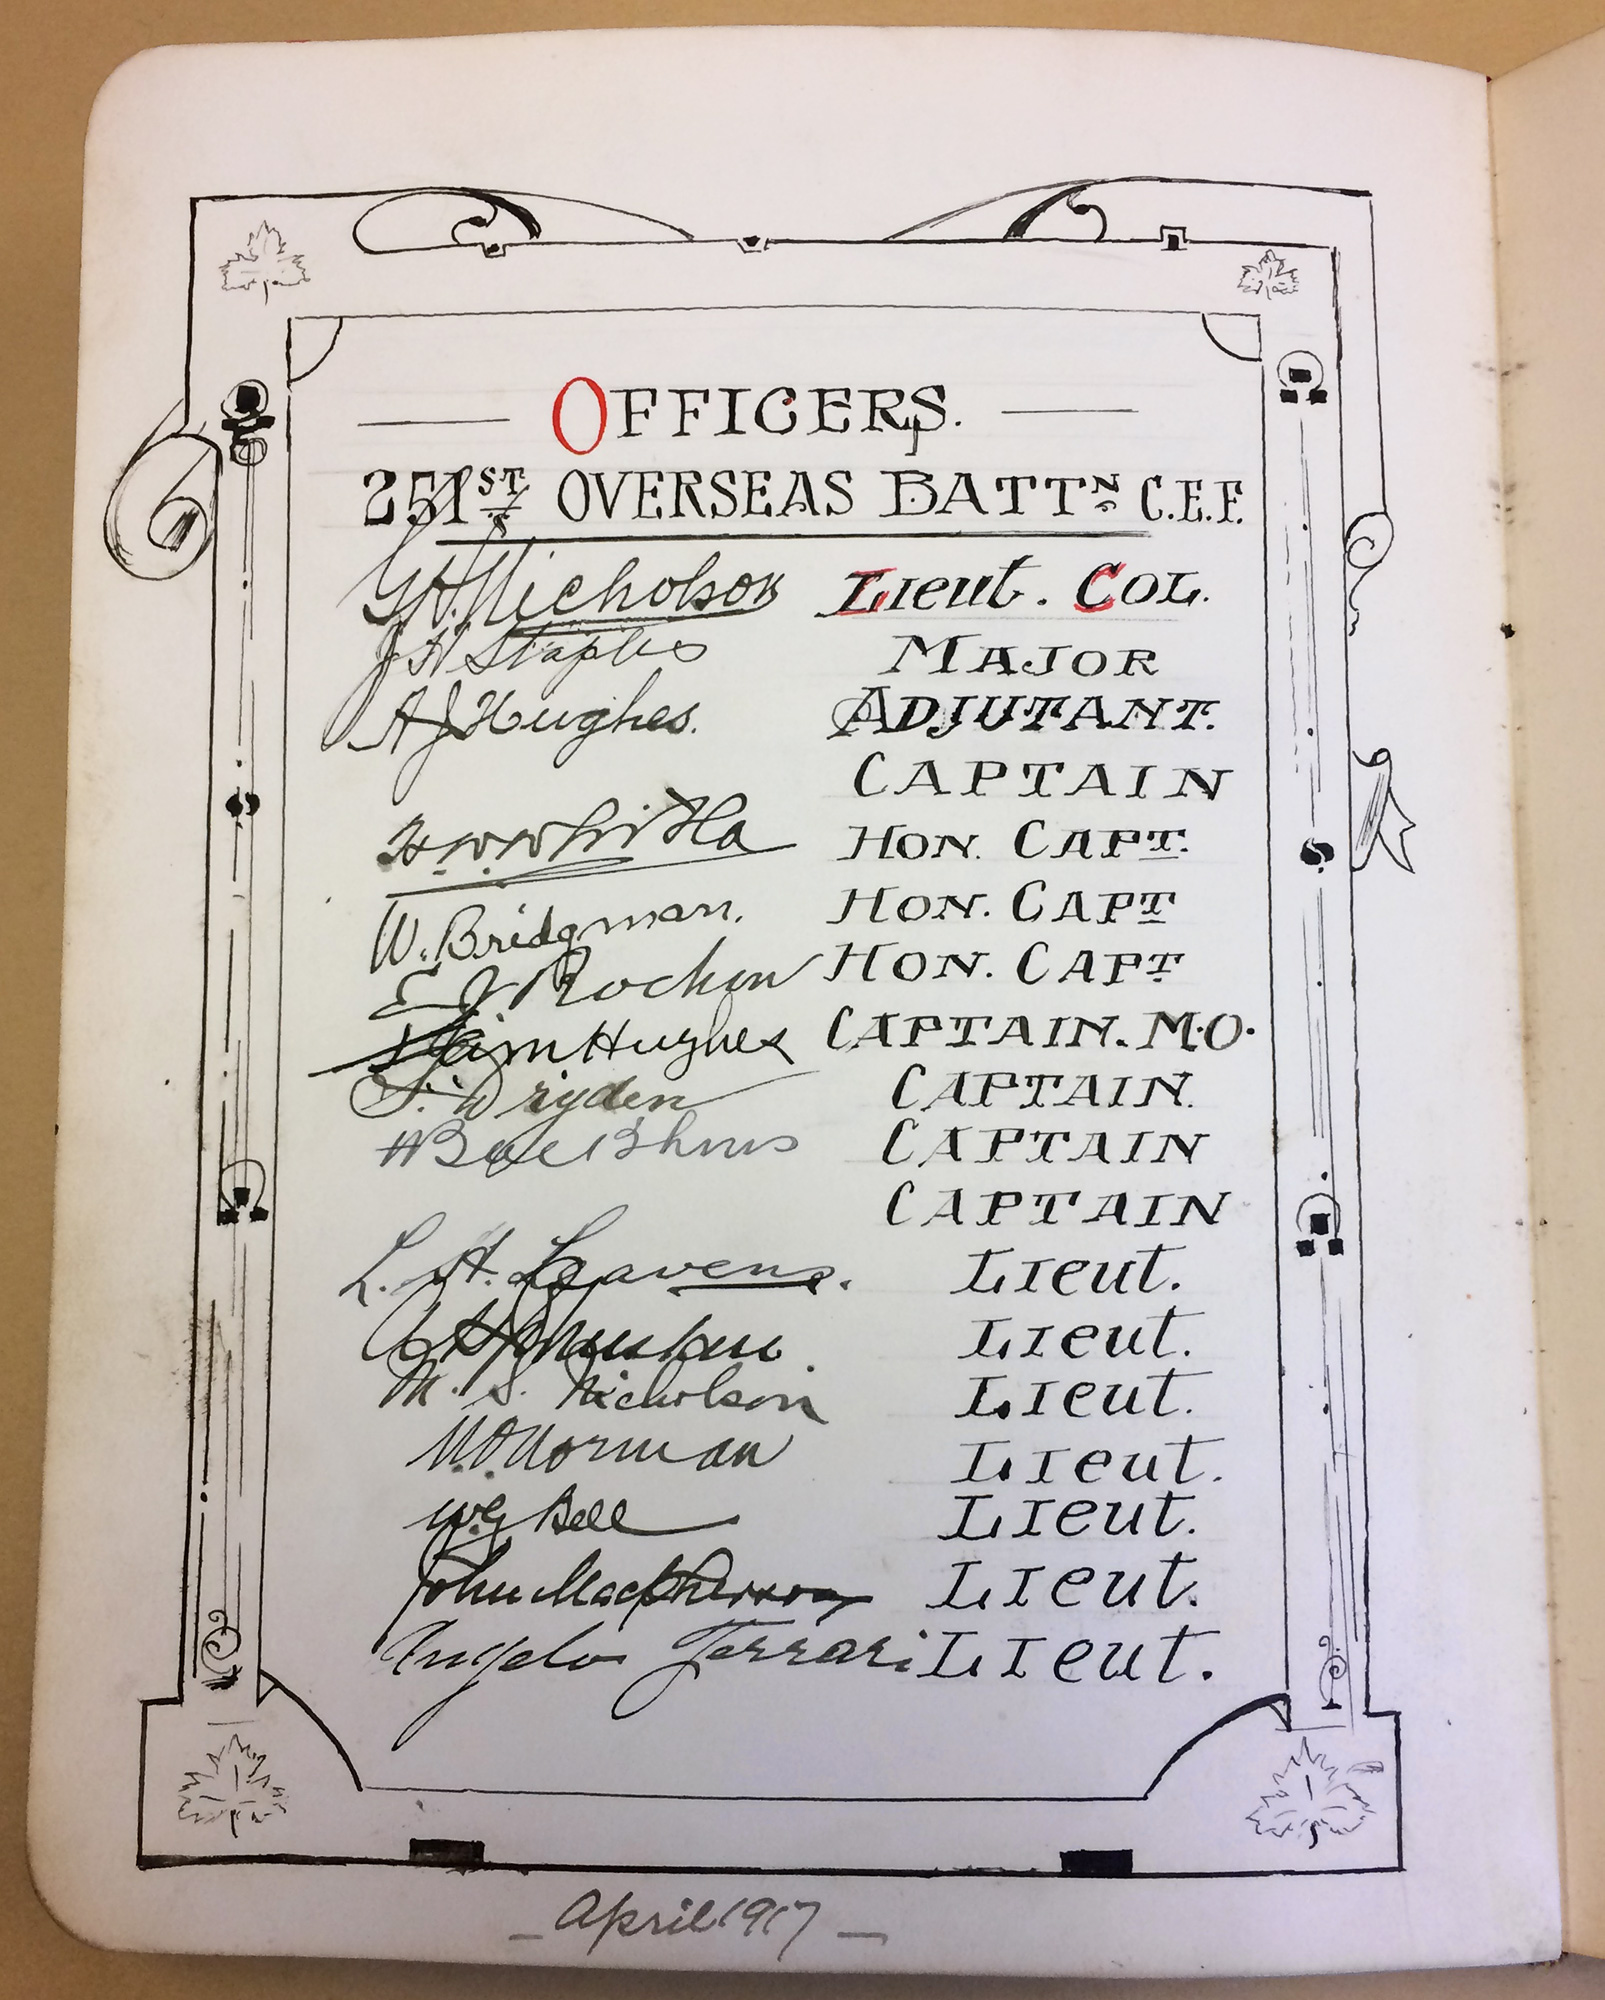 OFFICERS.
251ST OVERSEAS BATTN C.E.F.
G.H. Nicholson Lieut. COL.
J H Staples MAJOR
A J Hughes. ADJUTANT.
CAPTAIN
H.W. HON. CAPT.
W. Bridgman. HON. CAPT
E J Rochon HON. CAPT
Hughes CAPTAIN. M.O.
Dryden CAPTAIN.
CAPTAIN
CAPTAIN
L. H. Leavens. Lieut.
Lieut.
M. S. Nicholson Lieut.
Norman Lieut.
W G Bell Lieut.
John MacPherson Lieut.
Angelo Ferrari Lieut.
April 1917